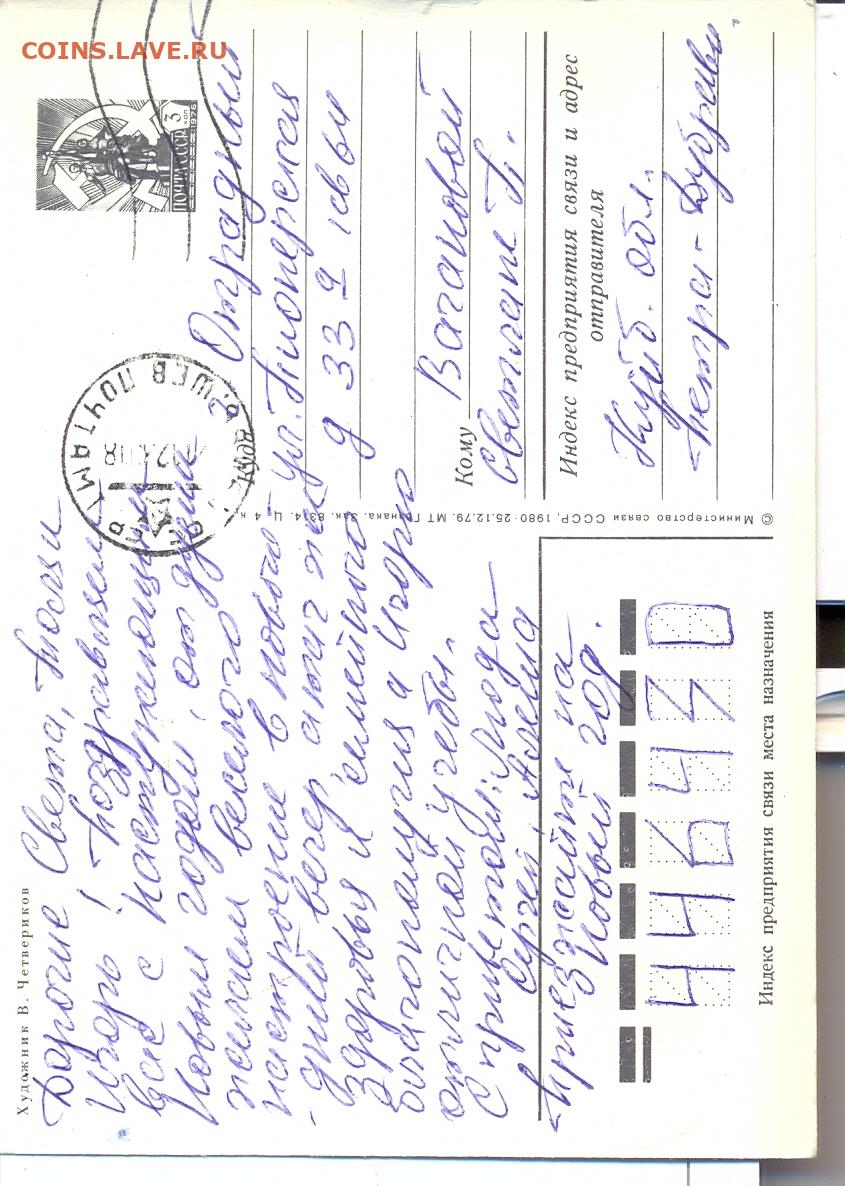 COINS.LAVE.RU
Художник В. Четвериков
Дорогие Света, Толя и
Игорь! Поздравляем
вас с наступающим
Новым годом, от души
желаем веселого
настроение в нового-
-дний вечер а так же
Здоровья и семейного
благополучия а Игорю
отличной учебы.
С приветом: Люда
Сергей, Алёша
Приезжайте на
Новый год.
446430
Индекс предприятия связи места назначения
© Министерство связи СССР, 1980
25.12.79. МТ Гознака. Зак. 8314. Ц. 4 к.
ПОЧТА СССР 3 КОП
1976
ПОЧТАМТ
г. Отрадный
ул. Пионерская
д 33
Кому Вагановой
Светлане П.
Индекс предприятия связи и адрес
отправителя
Куйб. обл.
Петра-Дубрава.